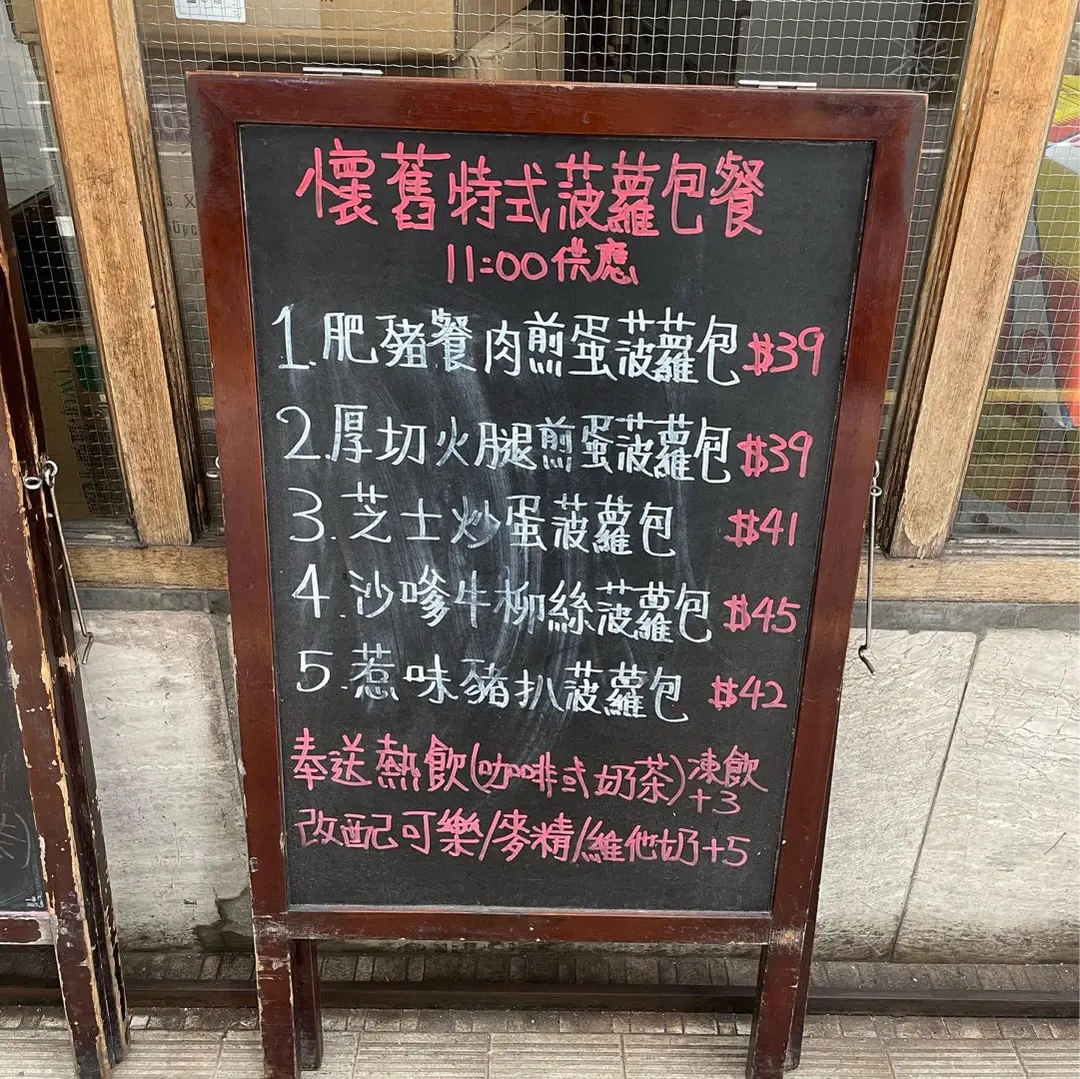 懷舊特式菠蘿包餐
11:00供應
1.肥豬餐肉煎蛋菠蘿包$39
2.厚切火腿煎蛋菠蘿包$39
3.芝士炒蛋菠蘿包 $41
4.沙嗲牛柳絲菠蘿包$45
5.惹味豬扒菠蘿包 $42
奉送熱飲(咖啡或奶茶)凍飲+3
改配可樂/麥精/維他奶+5